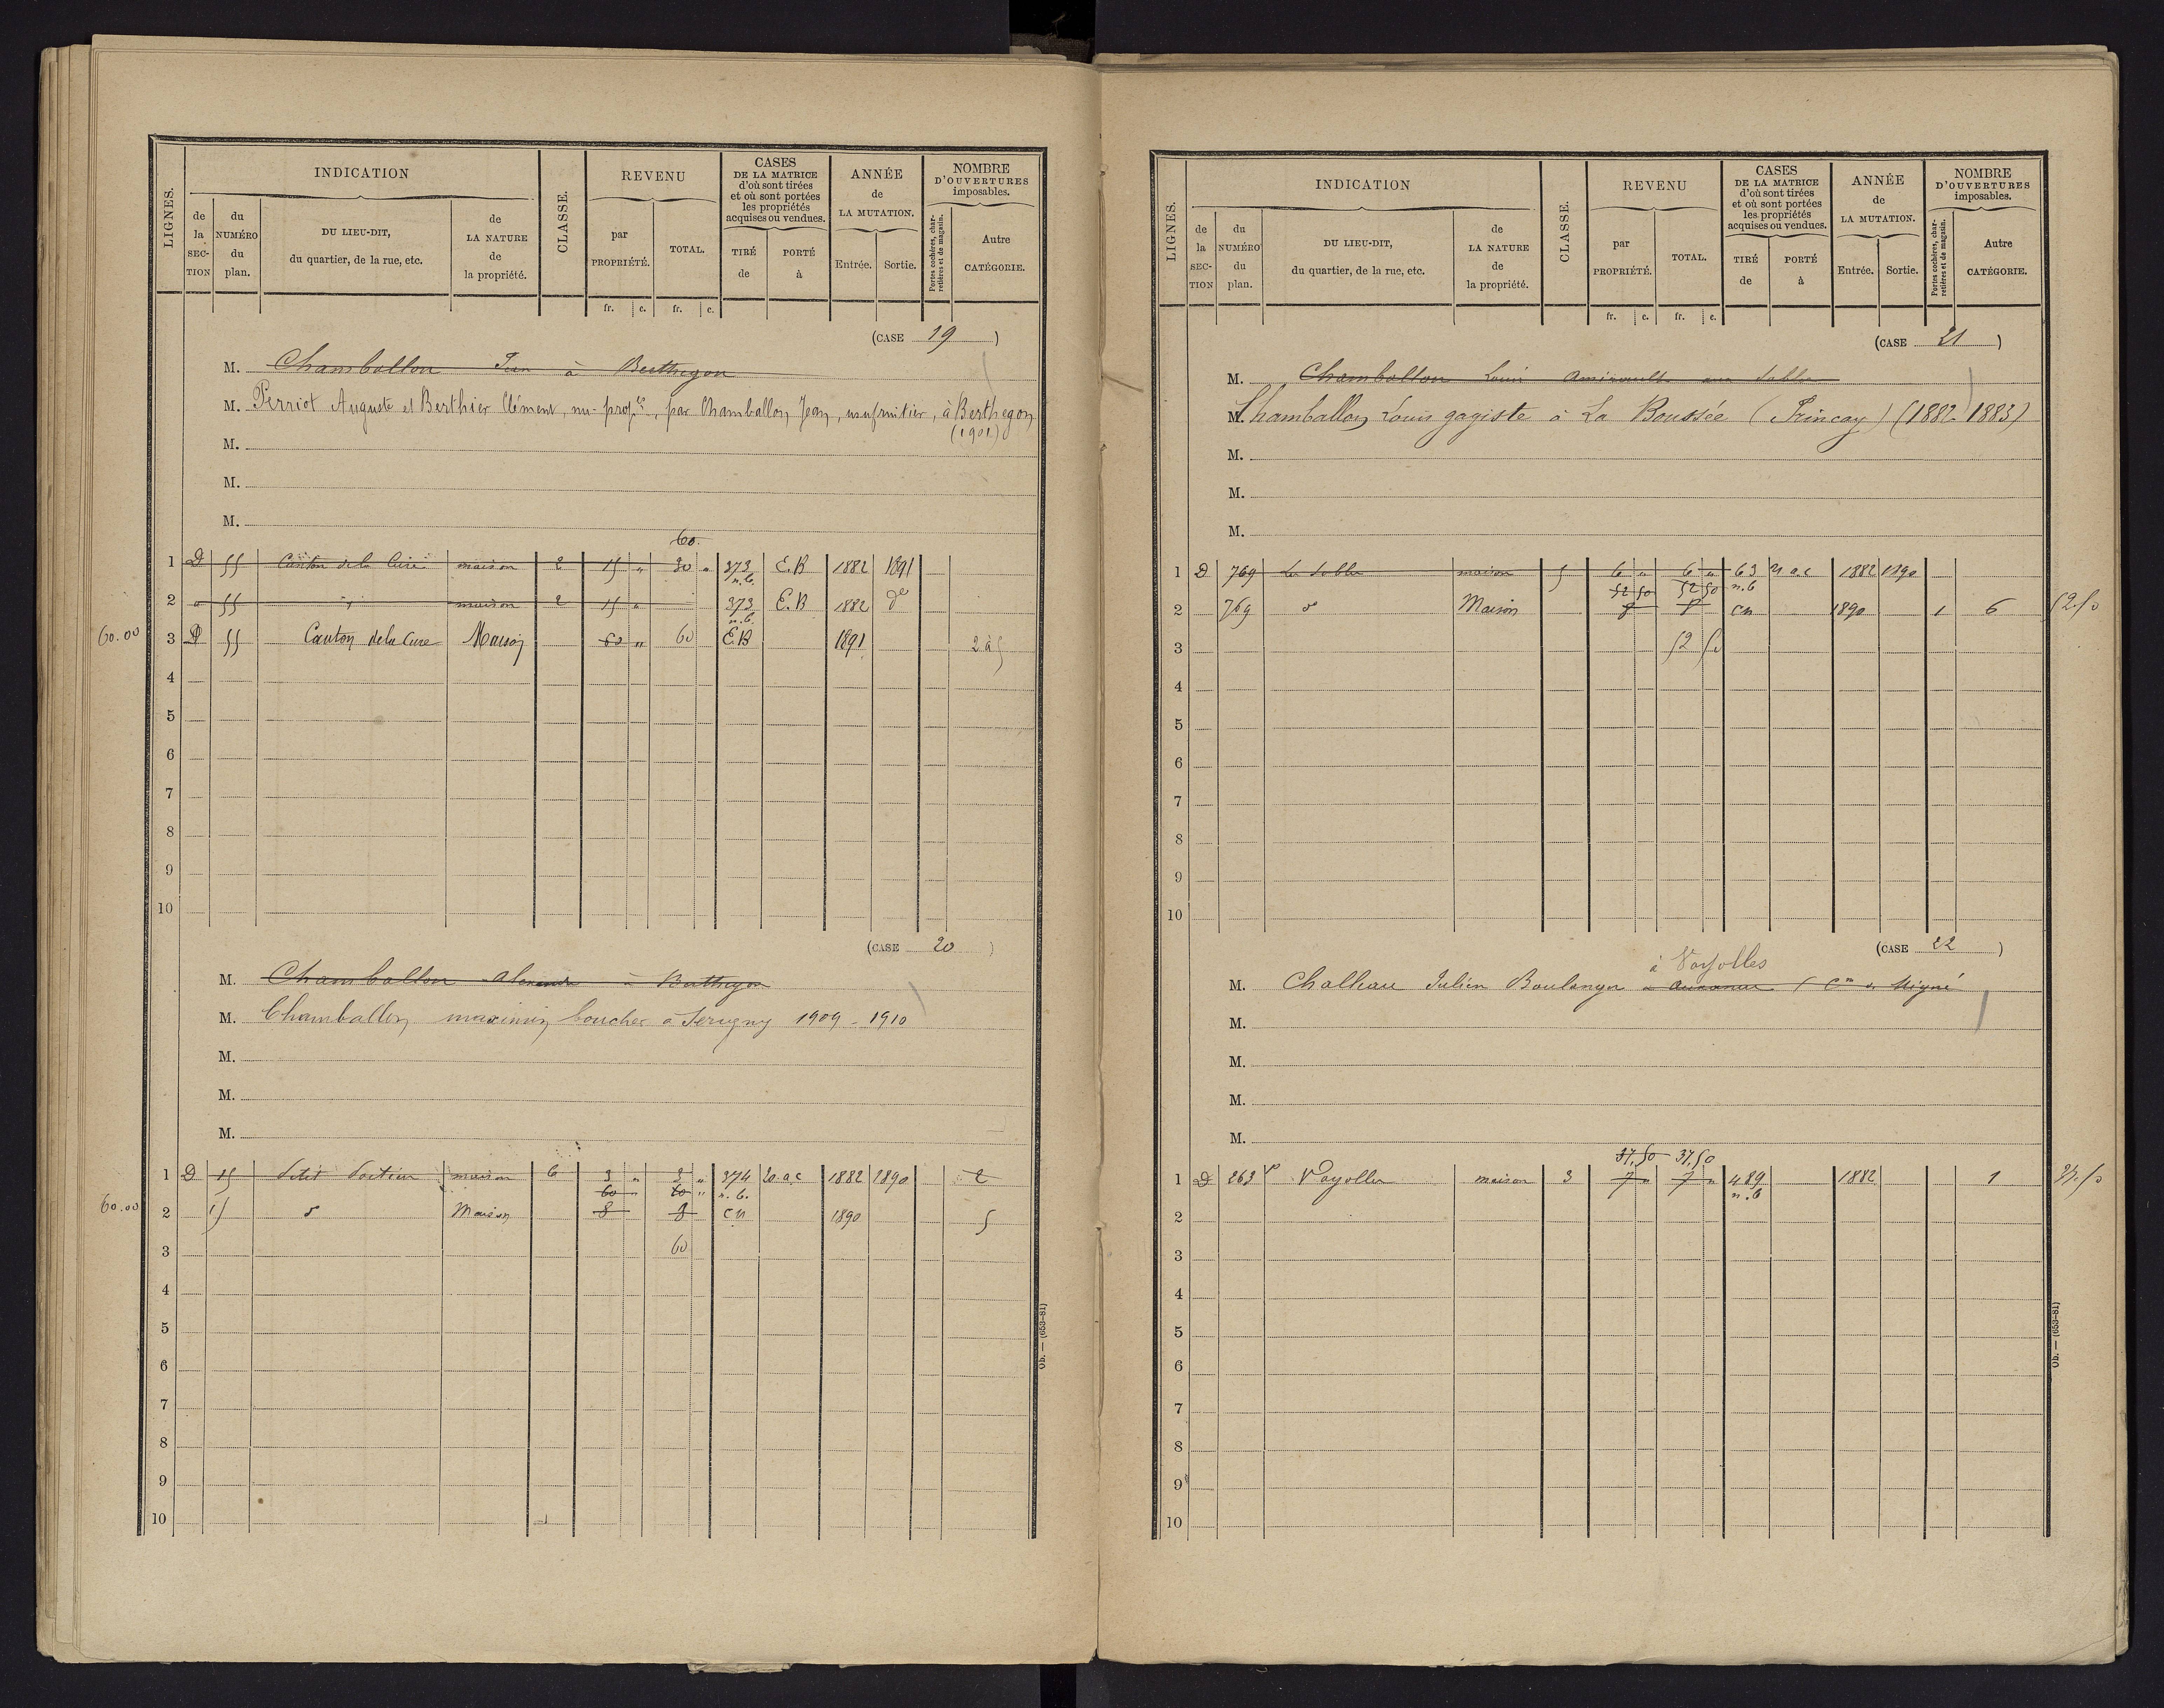 LIGNES.
INDICATION
CLASSE.
REVENU
CASES
DE LA MATRICE
d'où sont tirées
et où sont portées
les propriétés
acquises ou vendues.
ANNÉE
de
LA MUTATION.
NOMBRE
D'OUVERTURES
imposables.
de la SECTION
du NUMÉRO du plan.
DU LIEU-DIT,
du quartier, de la rue, etc.
de LA NATURE de la propriété.
par PROPRIÉTÉ.
TOTAL.
TIRÉ de
PORTÉ à
Entrée.
Sortie.
Portes cochères, charretières et de magasin.
Autre CATÉGORIE.
fr. c. fr. c.
(CASE 19)
M. Chamballon Jean à Berthegon
M. Perriot Auguste et Berthier Clément, nu-prop.res, par Chamballon Jean, usufruitier, à Berthegon
(1901)
M.
M.
M.
60.
1 D 55 Canton de la Cure maison 2 15 " 30 " 373 E.B 1882 1891
n.b.
2 " 55 " maison 2 15 " 373 E.B 1882 de
n.b.
60.00 3 D 55 Canton de la Cure Maison 60 " 60 E.B 1891 2 à 5
4
5
6
7
8
9
10
(CASE 20)
M. Chamballon à Berthegon
M. Chamballon maximin boucher a Serigny 1909 - 1910
M.
M.
M.
1 D 15 maison 6 3 " 3 " 374 20.a.c 1882 1890 2
60 " 60 " n.b.
60.00 2 15 d Maison 8 8 CN 1890 5
3 60
4
5
6
7
8
9
10
Ob. — (653-81)
LIGNES.
INDICATION
CLASSE.
REVENU
CASES
DE LA MATRICE
d'où sont tirées
et où sont portées
les propriétés
acquises ou vendues.
ANNÉE
de
LA MUTATION.
NOMBRE
D'OUVERTURES
imposables.
de la SECTION
du NUMÉRO du plan.
DU LIEU-DIT,
du quartier, de la rue, etc.
de LA NATURE de la propriété.
par PROPRIÉTÉ.
TOTAL.
TIRÉ de
PORTÉ à
Entrée.
Sortie.
Portes cochères, charretières et de magasin.
Autre CATÉGORIE.
fr. c. fr. c.
(CASE 21)
M. Chamballon Louis Amirault aux Sables
M. Chamballon Louis gagiste à La Boussée (Princay) (1882-1883)
M.
M.
M.
1 D 769 Les Sables maison 5 6 " 6 " 63 21 a.c 1882 1890
52 50 52 50 n.b
2 769 d Maison 8 8 CN 1890 1 6 52.50
3 52 50
4
5
6
7
8
9
10
(CASE 22)
à Vayolles
M. Challeau Julien Boulanger à (Cne de Migné
M.
M.
M.
M.
37,50 37,50
1 D 263 p Vayolles maison 3 7 " 7 " 489 1882 1 37.50
n.b
2
3
4
5
6
7
8
9
10
Ob. — (653-81)